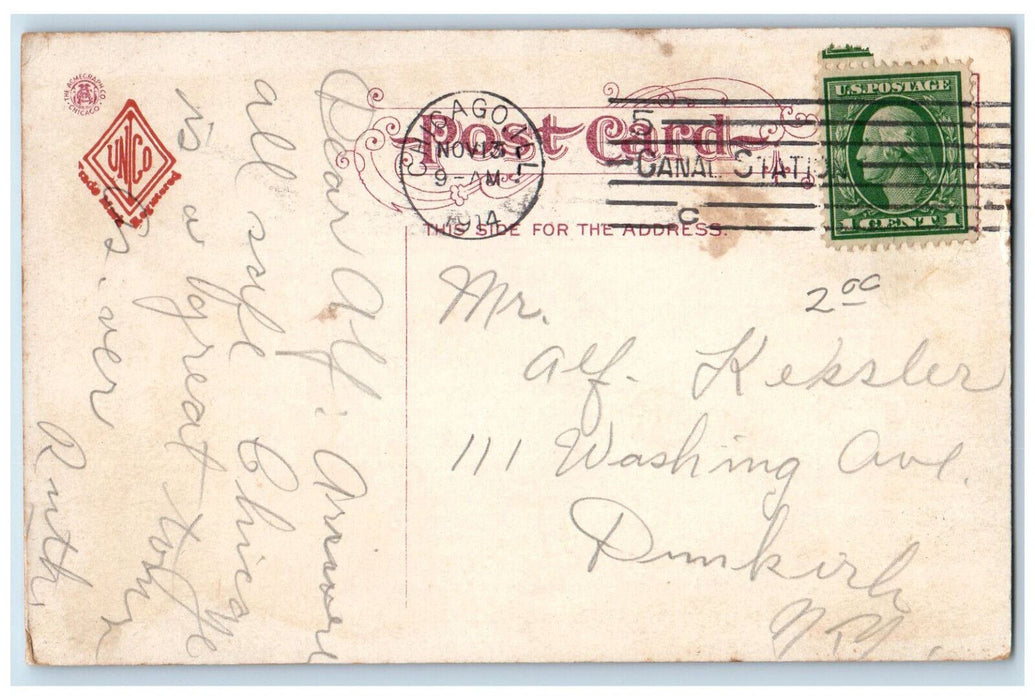 THE ACMEGRAPH CO.
CHICAGO
UNCO
Post Card
CHICAGO, ILL.
NOV 13
9-AM
1914
5
CANAL STATION
C
U.S. POSTAGE
1 CENT 1
THIS SIDE FOR THE ADDRESS.
2 00
Mr.
Alf. Kessler
111 Washing Ave.
Dunkirk
N.Y.
Dear Alf: Arrived
all safe Chicago
is a great town
as ever
Ruth.